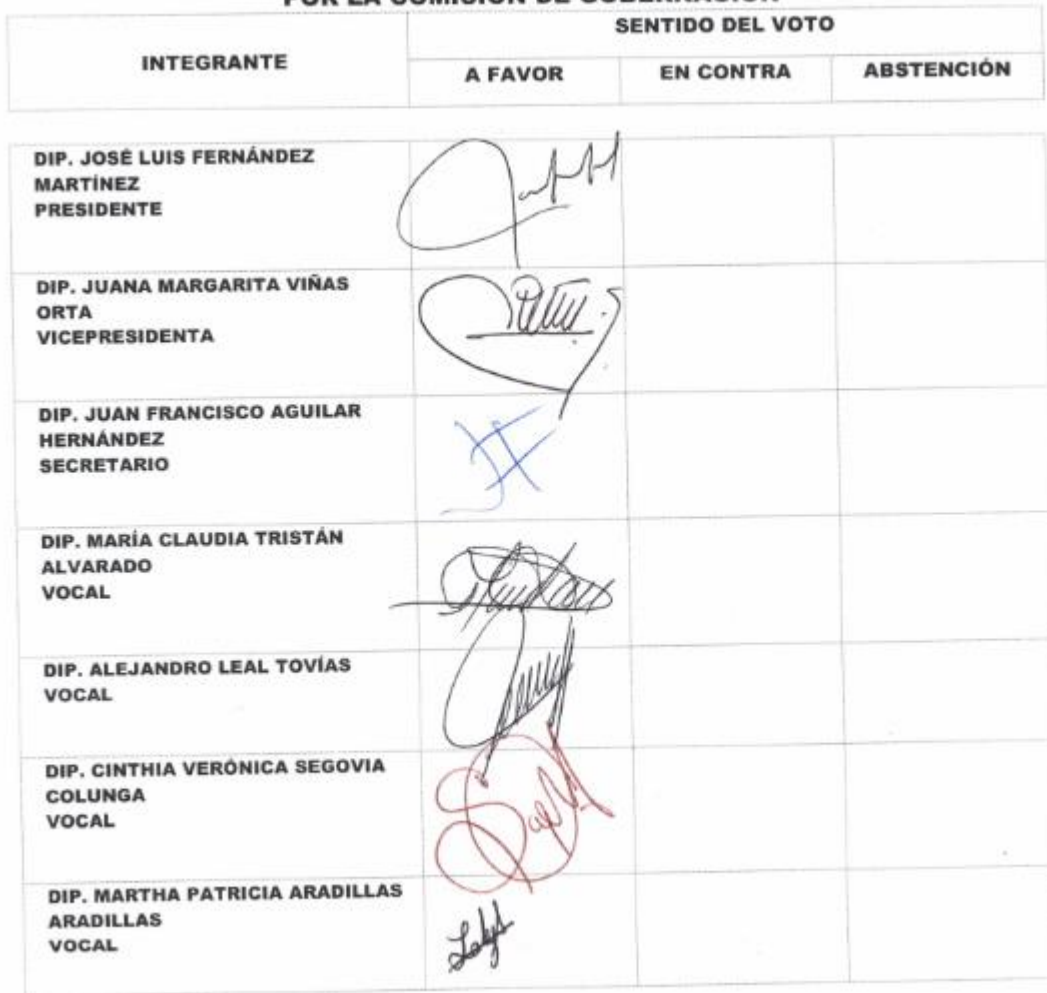 POR LA COMISIÓN DE GOBERNACIÓN
INTEGRANTE
SENTIDO DEL VOTO
A FAVOR
EN CONTRA
ABSTENCIÓN
DIP. JOSÉ LUIS FERNÁNDEZ
MARTÍNEZ
PRESIDENTE
DIP. JUANA MARGARITA VIÑAS
ORTA
VICEPRESIDENTA
DIP. JUAN FRANCISCO AGUILAR
HERNÁNDEZ
SECRETARIO
DIP. MARÍA CLAUDIA TRISTÁN
ALVARADO
VOCAL
DIP. ALEJANDRO LEAL TOVÍAS
VOCAL
DIP. CINTHIA VERÓNICA SEGOVIA
COLUNGA
VOCAL
DIP. MARTHA PATRICIA ARADILLAS
ARADILLAS
VOCAL